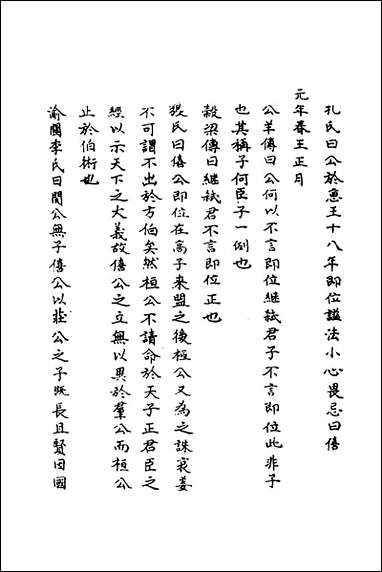 孔氏曰公於惠王十八年即位謚法小心畏忌曰僖
元年春王正月
公羊傳曰公何以不言即位繼弒君子不言即位此非子
也其稱子何臣子一例也
穀梁傳曰繼弒君不言即位正也
張氏曰僖公即位在高子來盟之後桓公又為之誅哀姜
不可謂不出於方伯矣然桓公不請命於天子正君臣之
經以示天下之大義故僖公之立無以異於羣公而桓公
止於伯術也
渝關李氏曰閔公無子僖公以莊公之子既長且賢因國